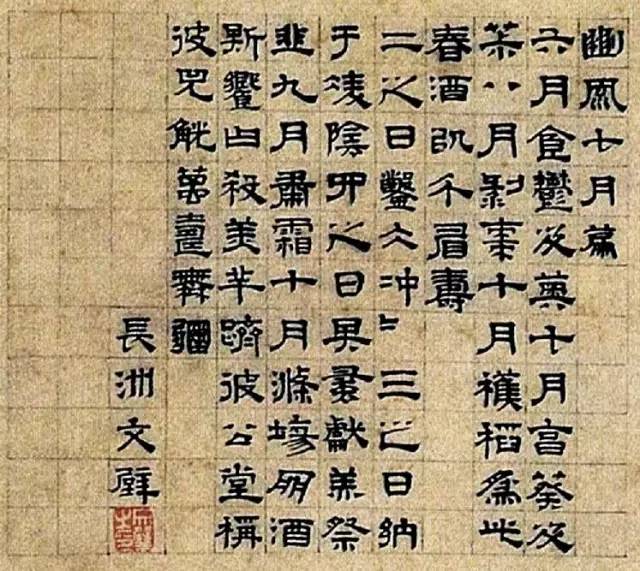 豳風七月篇
六月食鬱及薁十月亯葵及
菽八月剝棗十月穫稻為此
春酒以介眉壽
二之日鑿冰沖〻三之日納
于凌陰四之日其蚤獻羔祭
韭九月肅霜十月滌場朋酒
斯饗曰殺羔羊躋彼公堂稱
彼兕觥萬壽無疆
長洲文璧